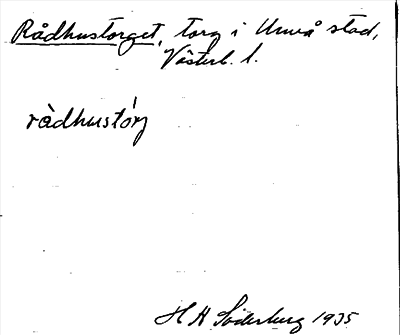 Rådhustorget, torg i Umeå stad,
Västerb. l.
rådhustórj
H A Söderberg 1935